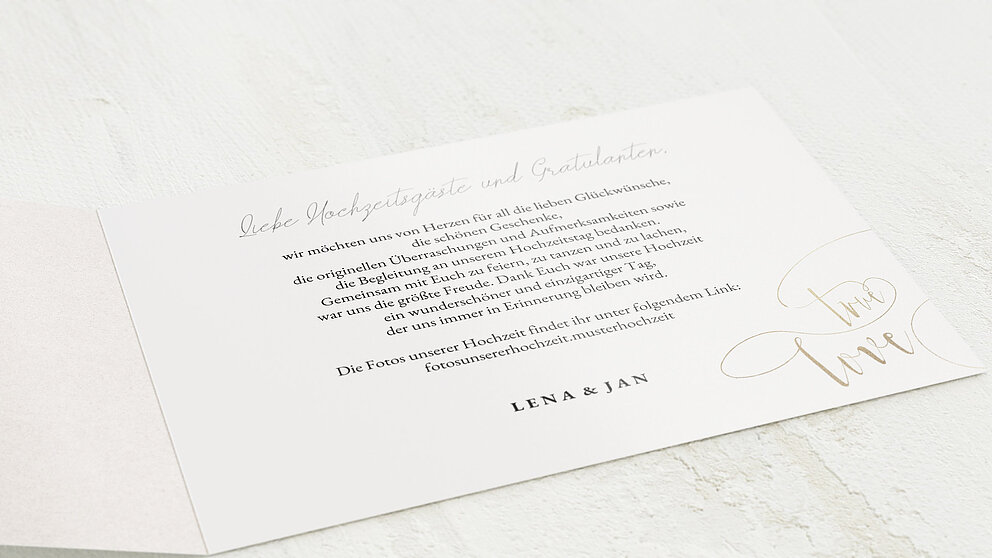 Liebe Hochzeitsgäste und Gratulanten,
wir möchten uns von Herzen für all die lieben Glückwünsche,
die schönen Geschenke,
die originellen Überraschungen und Aufmerksamkeiten sowie
die Begleitung an unserem Hochzeitstag bedanken.
Gemeinsam mit Euch zu feiern, zu tanzen und zu lachen,
war uns die größte Freude. Dank Euch war unsere Hochzeit
ein wunderschöner und einzigartiger Tag,
der uns immer in Erinnerung bleiben wird.
Die Fotos unserer Hochzeit findet ihr unter folgendem Link:
fotosunsererhochzeit.musterhochzeit
LENA & JAN
true
love